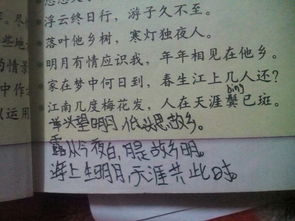 浮云终日行，游子久不至。
落叶他乡树，寒灯独夜人。
明月有情应识我，年年相见在他乡。
家在梦中何日到，春生江上几人还？
江南几度梅花发，人在天涯鬓已斑。
bìng
举头望明月 低头思故乡。
露从今夜白，月是故乡明。
海上生明月，天涯共此时